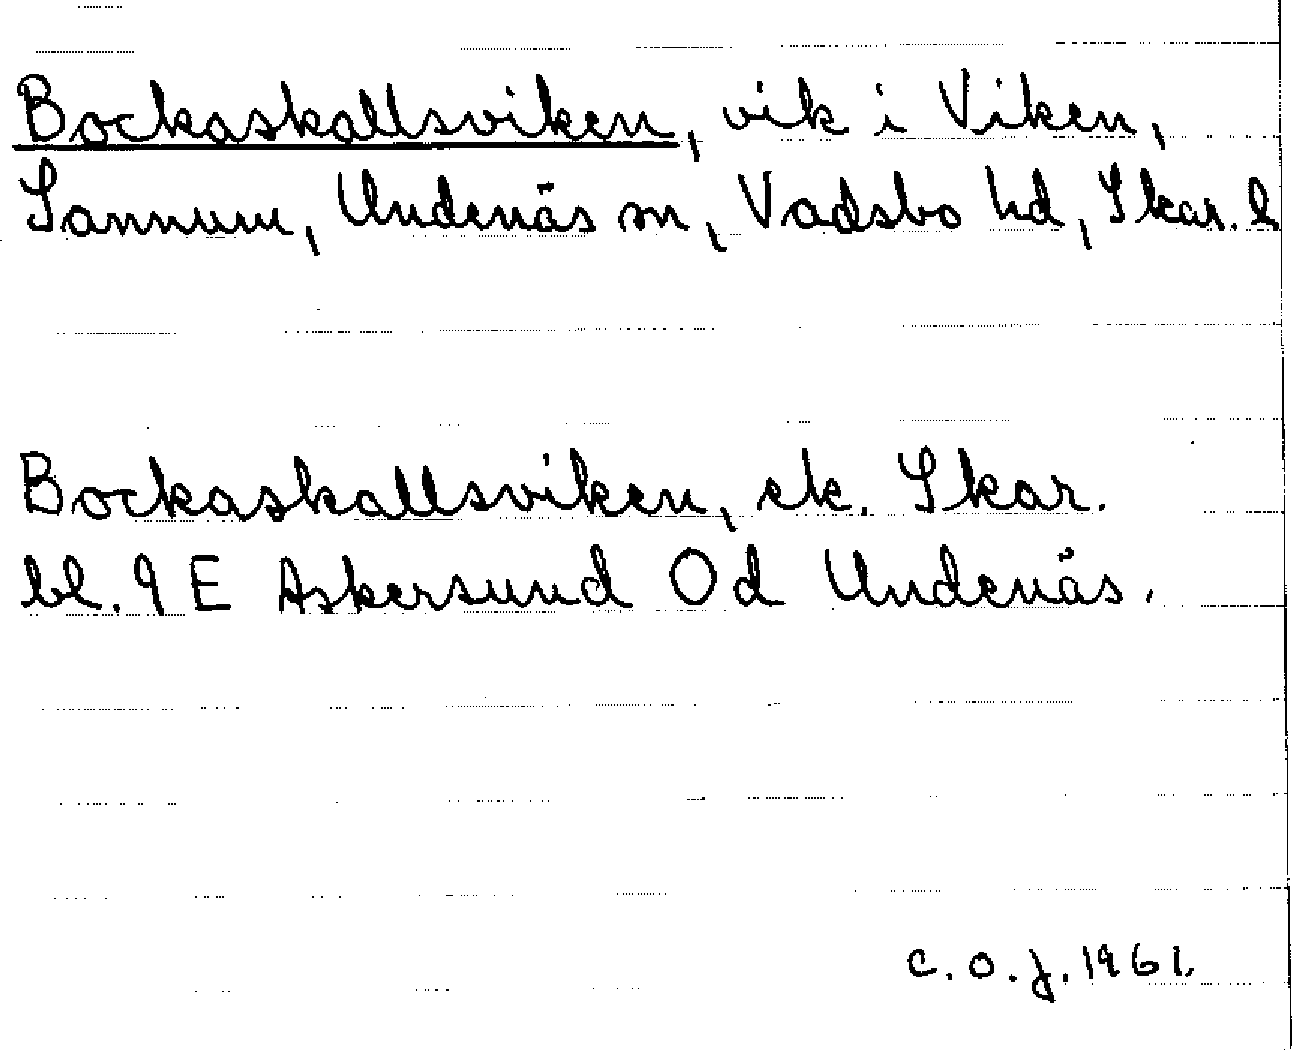 Bockaskallsviken, vik i Viken,
Sannum, Undenäs sn, Vadsbo hd, Skar. l
Bockaskallsviken, ek. Skar.
bl. 9 E Askersund Od Undenäs.
C. O. J. 1961.